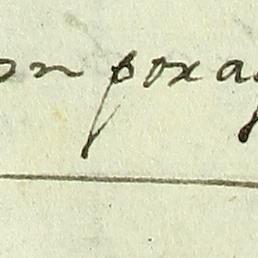 on poxa